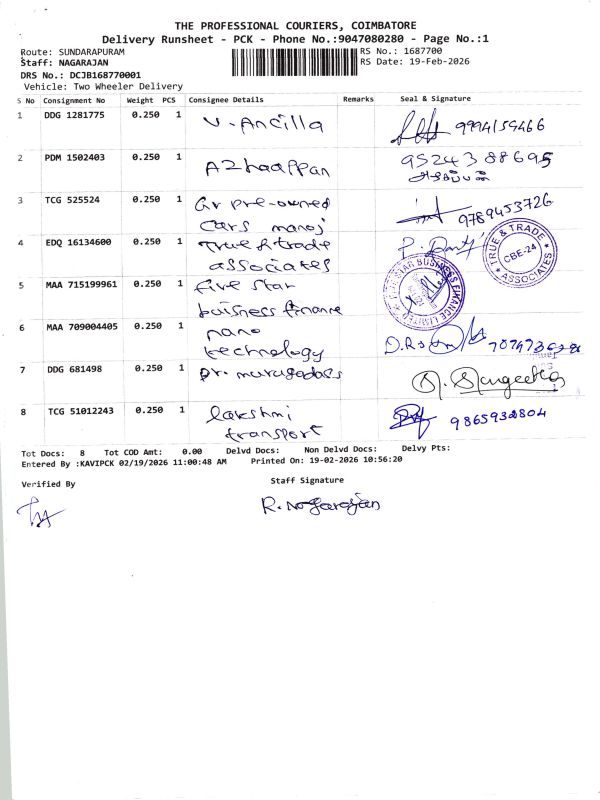 THE PROFESSIONAL COURIERS, COIMBATORE
Delivery Runsheet - PCK - Phone No.:9047080280 - Page No.:1
Route: SUNDARAPURAM
RS No.: 1687700
Staff: NAGARAJAN
RS Date: 19-Feb-2026
DRS No.: DCJB168770001
Vehicle: Two Wheeler Delivery
S No Consignment No Weight PCS Consignee Details Remarks Seal & Signature
1 DDG 1281775 0.250 1 V. Ancilla 9994159466
2 PDM 1502403 0.250 1 Azhaappan 9524388695
3 TCG 525524 0.250 1 Gr pre-owned cars manoj 9789453726
4 EDQ 16134600 0.250 1 True & trade associates
TRUE & TRADE ASSOCIATES CBE-24
5 MAA 715199961 0.250 1 five star buisness finance
FIVE STAR BUSINESS FINANCE LIMITED
6 MAA 709004405 0.250 1 nano technology
7 DDG 681498 0.250 1 Dr. murugadoss
8 TCG 51012243 0.250 1 lakshmi transport 9865932804
Tot Docs: 8 Tot COD Amt: 0.00 Delvd Docs: Non Delvd Docs: Delvy Pts:
Entered By :KAVIPCK 02/19/2026 11:00:48 AM Printed On: 19-02-2026 10:56:20
Verified By Staff Signature
R. Nagarajan